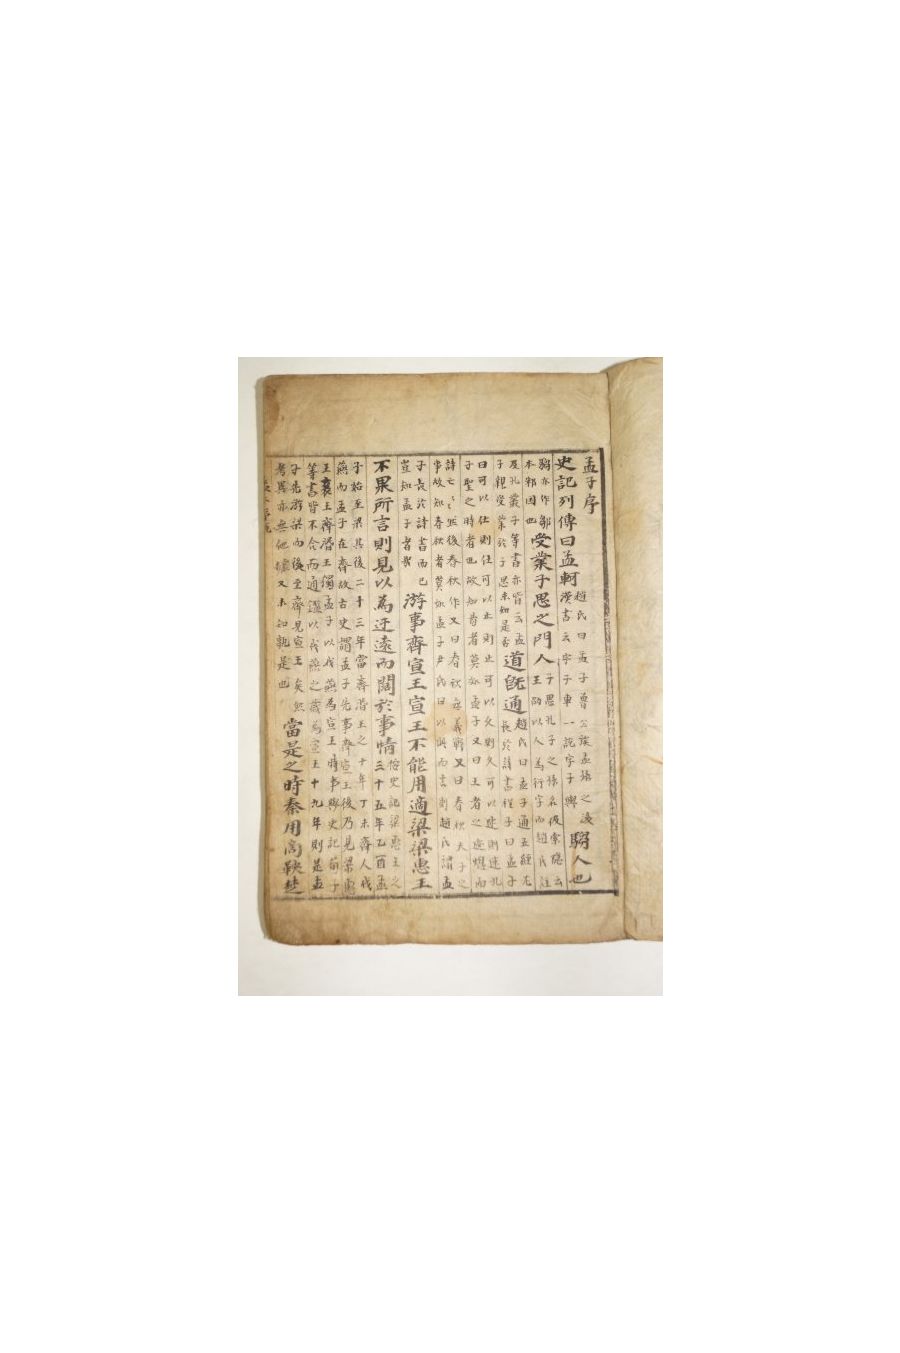 孟子序
史記列傳曰孟軻 趙氏曰孟子魯公族孟孫之後
漢書云字子車一說字子輿 騶人也
騶亦作鄒
本邾國也 受業子思之門人 子思孔子之孫名伋索隱云
王劭以人為衍字而趙氏註
及孔叢子等書亦皆云孟
子親受業於子思未知是否 道既通 趙氏曰孟子通五經尤
長於詩書程子曰孟子
曰可以仕則仕可以止則止可以久則久可以速則速孔
子聖之時者也故知易者莫如孟子又曰王者之迹熄而
詩亡詩亡然後春秋作又曰春秋無義戰又曰春秋天子之
事故知春秋者莫如孟子尹氏曰以此而言則趙氏謂孟
子長於詩書而已
豈知孟子者哉 游事齊宣王宣王不能用適梁梁惠王
不果所言則見以為迂遠而闊於事情 按史記梁惠王之
三十五年乙酉孟
子始至梁其後二十三年當齊湣王之十年丁未齊人伐
燕而孟子在齊故古史謂孟子先事齊宣王後乃見梁惠
王襄王齊湣王獨孟子以伐燕為宣王時事與史記荀子
等書皆不合而通鑑以伐燕之歲為宣王十九年則是孟
子先游梁而後至齊見宣王矣然
考異亦無他據又未知孰是也 當是之時秦用商鞅楚